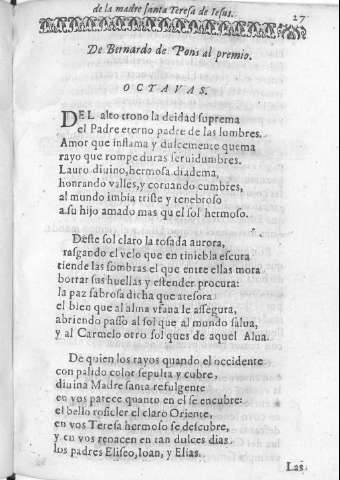 de la madre santa Teresa de Iesus.
27
De Bernardo de Pons al premio.
OCTAVAS.
DEL alto trono la deidad suprema
el Padre eterno padre de las lumbres.
Amor que inflama y dulcemente quema
rayo que rompe duras seruidumbres.
Lauro diuino, hermosa diadema,
honrando valles, y coronando cumbres,
al mundo imbia triste y tenebroso
a su hijo amado mas qu el sol hermoso.
Deste sol claro la rosada aurora,
rasgando el velo que en tiniebla escura
tiende las sombras el que entre ellas mora
borrar sus huellas y estender procura:
la paz sabrosa dicha que atesora
el bien que al alma vfana le assegura,
abriendo passo al sol que al mundo salua,
y al Carmelo otro sol ques de aquel Alua.
De quien los rayos quando el occidente
con palido color sepulta y cubre,
diuina Madre santa refulgente
en vos parece quanto en el se encubre:
el bello rosicler el claro Oriente,
en vos Teresa hermoso se descubre,
y en vos renacen en tan dulces dias
los padres Eliseo, Ioan, y Elias.
Las